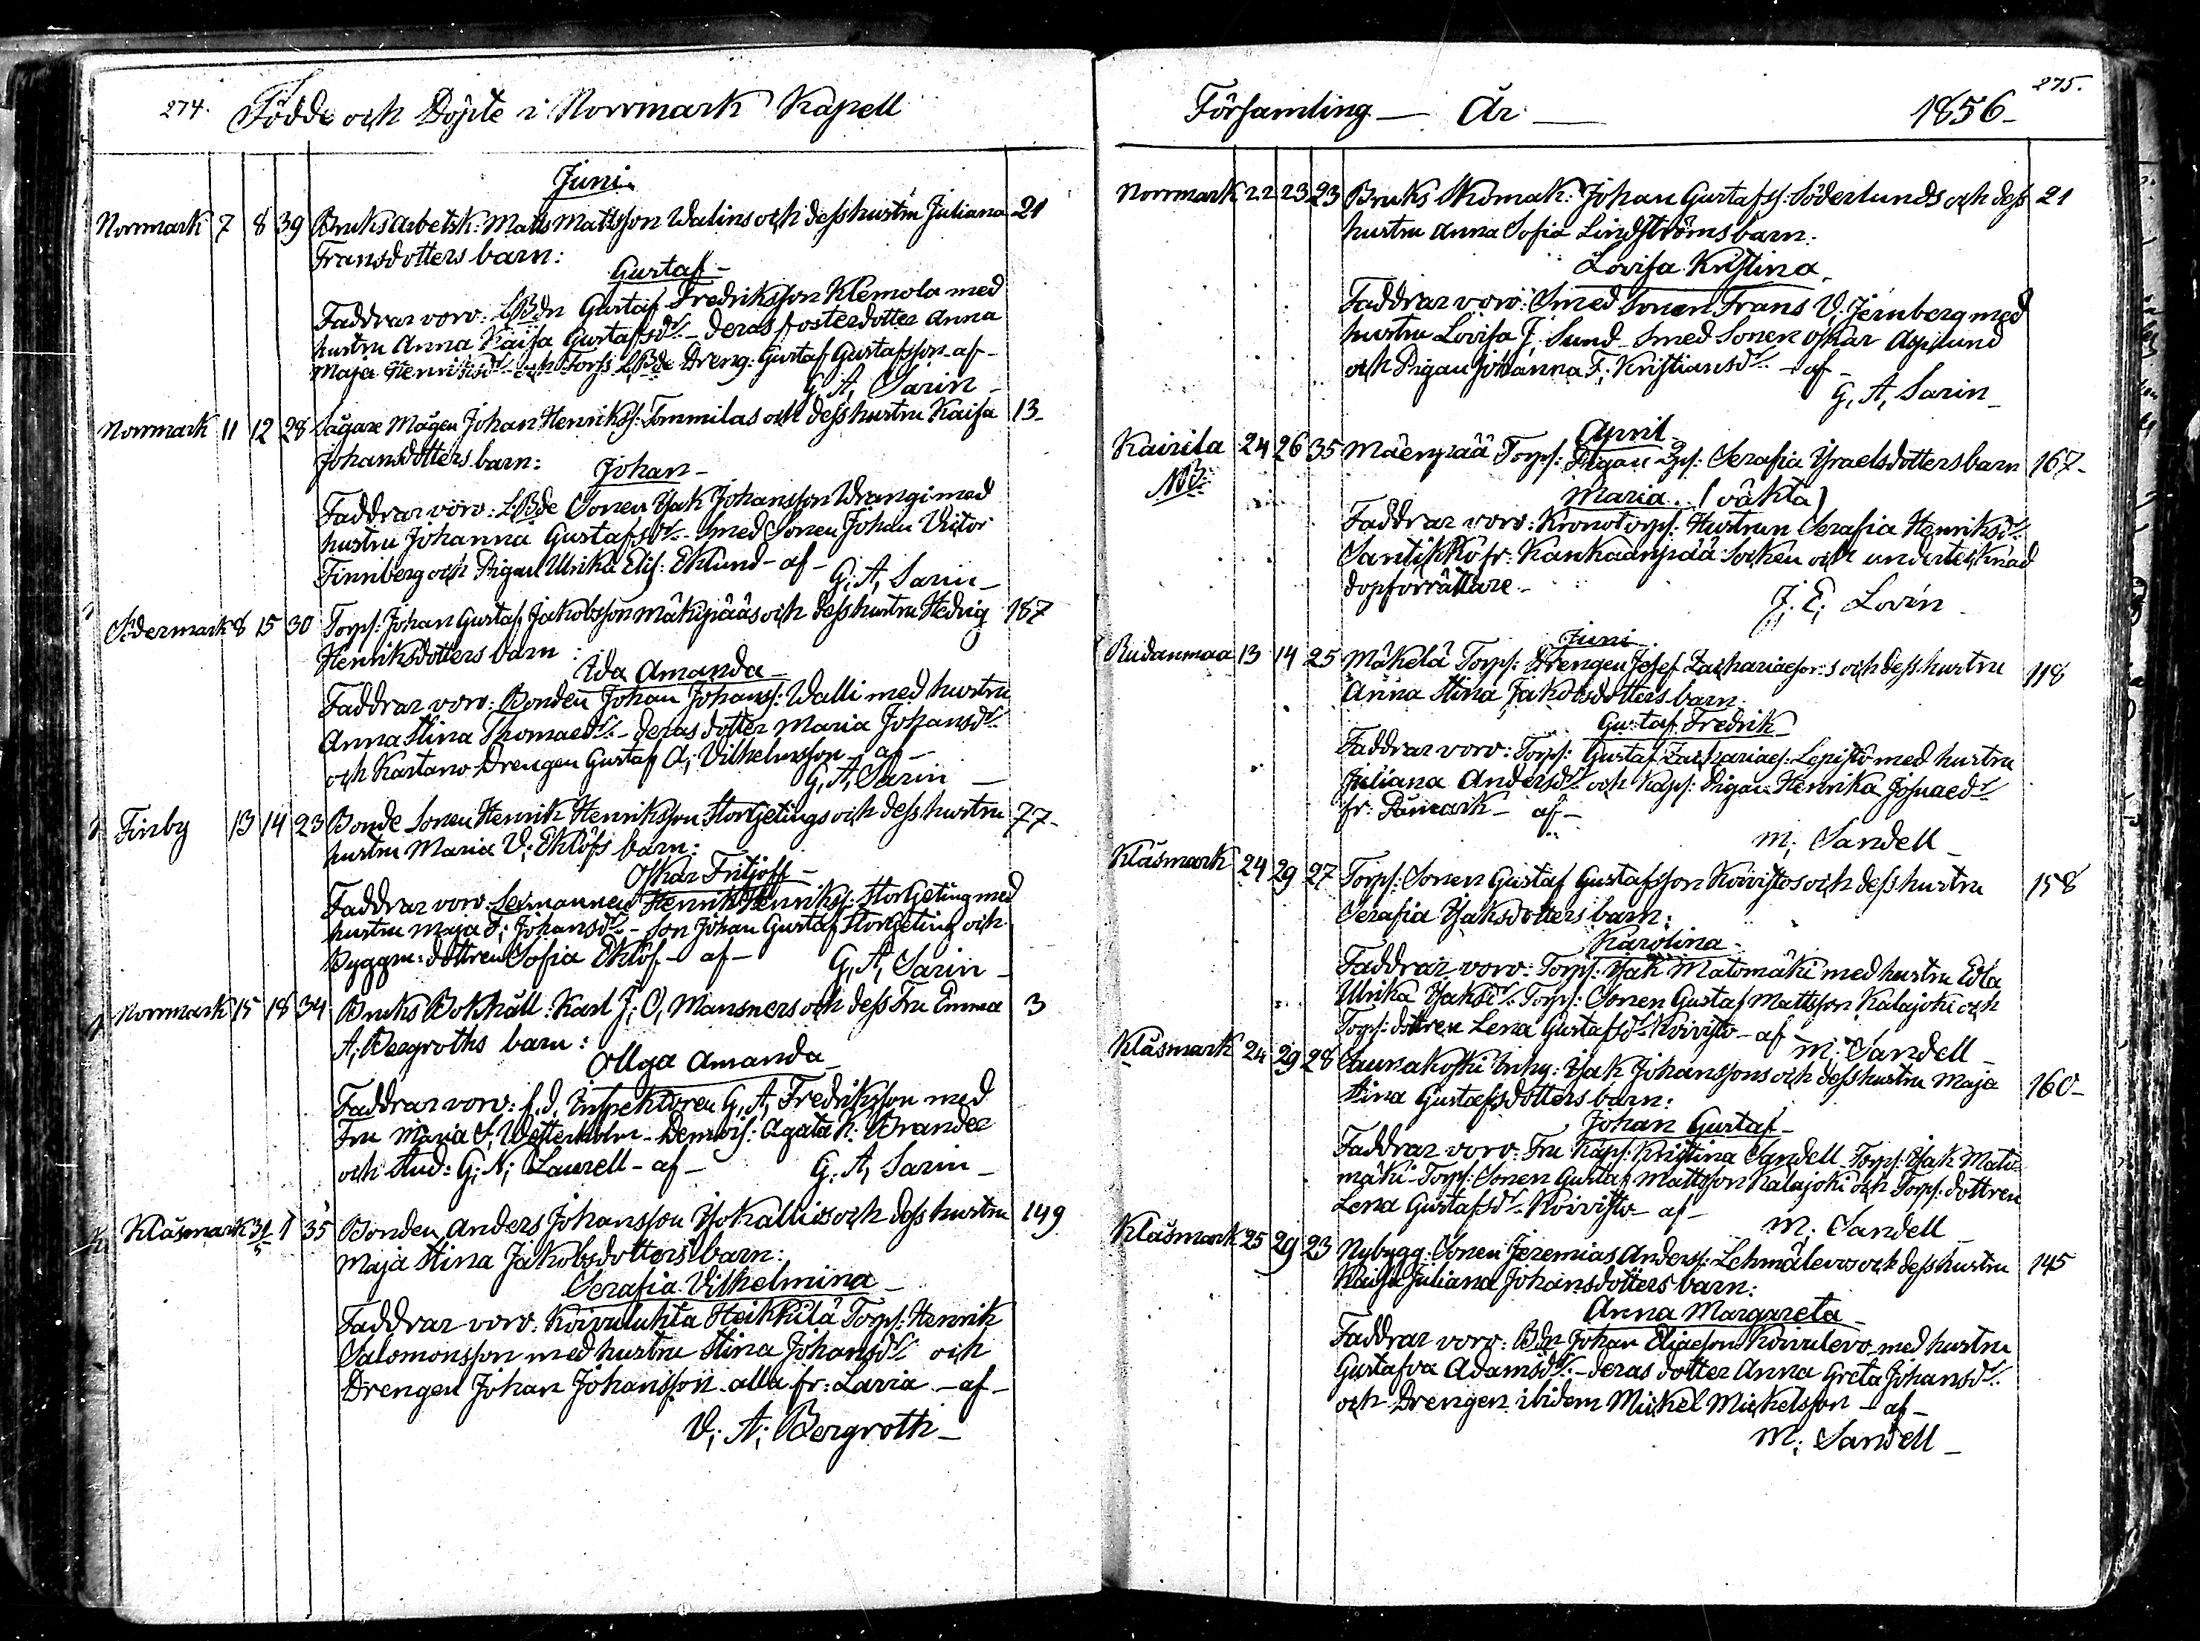 274. Födde och Döpte i Norrmark Kapell
Juni.
Norrmark 7 8 39 Bruks Arbetsk: Matts Mattsson Walins och dess hustru Juliana 21
Fransdotters barn:
Gustaf
Faddrar voro: LBdn Gustaf Fredriksson Klemola med
hustru Anna Kaisa Gustafsdr - deras fosterdotter Anna
Maja Henriksdr och Torps LBde Dreng: Gustaf Gustafsson - af -
G. A. Sarin -
Norrmark 11 12 28 Sågare Mågen Johan Henrikss: Tommilas och dess hustru Kaisa 13-
Johansdotters barn:
Johan -
Faddrar voro: LBde Sonen Isak Johansson Wrangi med
hustru Johanna Gustafsdr - Smed Sonen Johan Victor
Finnberg och Pigan Ulrika Elis: Eklund - af -
G. A. Sarin -
Södermark 8 15 30 Torp: Johan Gustaf Jakobsson Mäkipääs och dess hustru Hedvig 187
Henriksdotters barn:
Ida Amanda -
Faddrar voro: Bonden Johan Johanss: Walli med hustru
Anna Stina Thomaedr - deras dotter Maria Johansdr
och Kartano Drengen Gustaf A. Vilhelmsson - af -
G. A. Sarin -
Finby 13 14 23 Bonde Sonen Henrik Henriksson Storgetings och dess hustru 77-
hustru Maria V. Eklöfs barn:
Oskar Fritjoff -
Faddrar voro: Lexmannen Henrik Henrikss: Storgeting med
hustru Maja F. Johansdr - Son Johan Gustaf Storgeting och
Byggm: dottren Sofia Eklöf - af -
G. A. Sarin -
Norrmark 15 18 34 Bruks Bokhåll: Karl J. O. Mansners och dess Fru Emma 3
A. Bergroths barn:
Ollga Amanda
Faddrar voro: f.d. Inspektoren G. A. Fredriksson med
Fru Maria S. Westerholm - Demois: Agata K. Brander
och Stud: G. N. Laurell - af -
G. A. Sarin -
Klåsmark 31/5 1 35 Bonden Anders Johansson Isokallios och dess hustru 149
Maja Stina Jakobsdotters barn:
Serafia Vilhelmina -
Faddrar voro: Koivuluhta Heikkilä Torp: Henrik
Salomonsson med hustru Stina Johansdr och
Drengen Johan Johansson alla fr: Lavia - af -
V. A. Bergroth -
Församling - År - 1856 - 275.
Norrmark 22 23 23 Bruks Skomak: Johan Gustafss: Söderlunds och dess 21
hustru Anna Sofia Lindströms barn:
Lovisa Kristina
Faddrar voro: Smed Sonen Frans V. Jernberg med
hustru Lovisa J. Sund - Smed Sonen Oskar Asplund
och Pigan Johanna F. Kristiansdr - af -
G. A. Sarin -
April
Kairila 24 26 35 Mäenpää Torp: Pigan Serafia Israelsdotters barn 167-
NB.
Maria (oäkta)
Faddrar voro: Kronotorp: Hustrun Serafia Henriksdr
Santikko fr: Kankaanpää Socken och undertecknad
dopförrättare -
J. E. Lovén
Juni
Rudanmaa 13 14 25 Mäkelä Torp: Drengen Josef Zachariaesons och dess hustru 118
Anna Stina Jakobsdotters barn
Gustaf Fredrik
Faddrar voro: Torp: Gustaf Zachariaes: Lepistö med hustru
Juliana Andersdr och Kapl: Pigan Henrika Josuaedr
fr: Påmark - af -
M. Sandell -
Klåsmark 24 29 27 Torp: Sonen Gustaf Gustafsson Koivistos och dess hustru 158
Serafia Isaksdotters barn:
Karolina -
Faddrar voro: Torp: Isak Matomäki med hustru Edla
Ulrika Isaksdr Torp: Sonen Gustaf Mattsson Kalajoki och
Torp: dottren Lena Gustafsdr Koivisto - af
M. Sandell -
Klåsmark 24 29 28 Saunakoski Inhy: Isak Johanssons och dess hustru Maja 160-
Stina Gustafsdotters barn:
Johan Gustaf -
Faddrar voro: Fru Kapl: Kristina Sandell Torp: Isak Mato-
mäki - Torp: Sonen Gustaf Mattsson Kalajoki och Torp: dottren
Lena Gustafsdr Koivisto af -
M. Sandell -
Klåsmark 25 29 23 Nybygg: Sonen Jeremias Anderss: Lehmälevos och dess hustru 145
Kaisa Juliana Johansdotters barn:
Anna Margareta
Faddrar voro: Bdn Johan Eliaeson Koivulevo med hustru
Gustafva Adamsdr - deras dotter Anna Greta Johansdr
och Drengen ibidem Mickel Mickelsson - af -
M. Sandell -